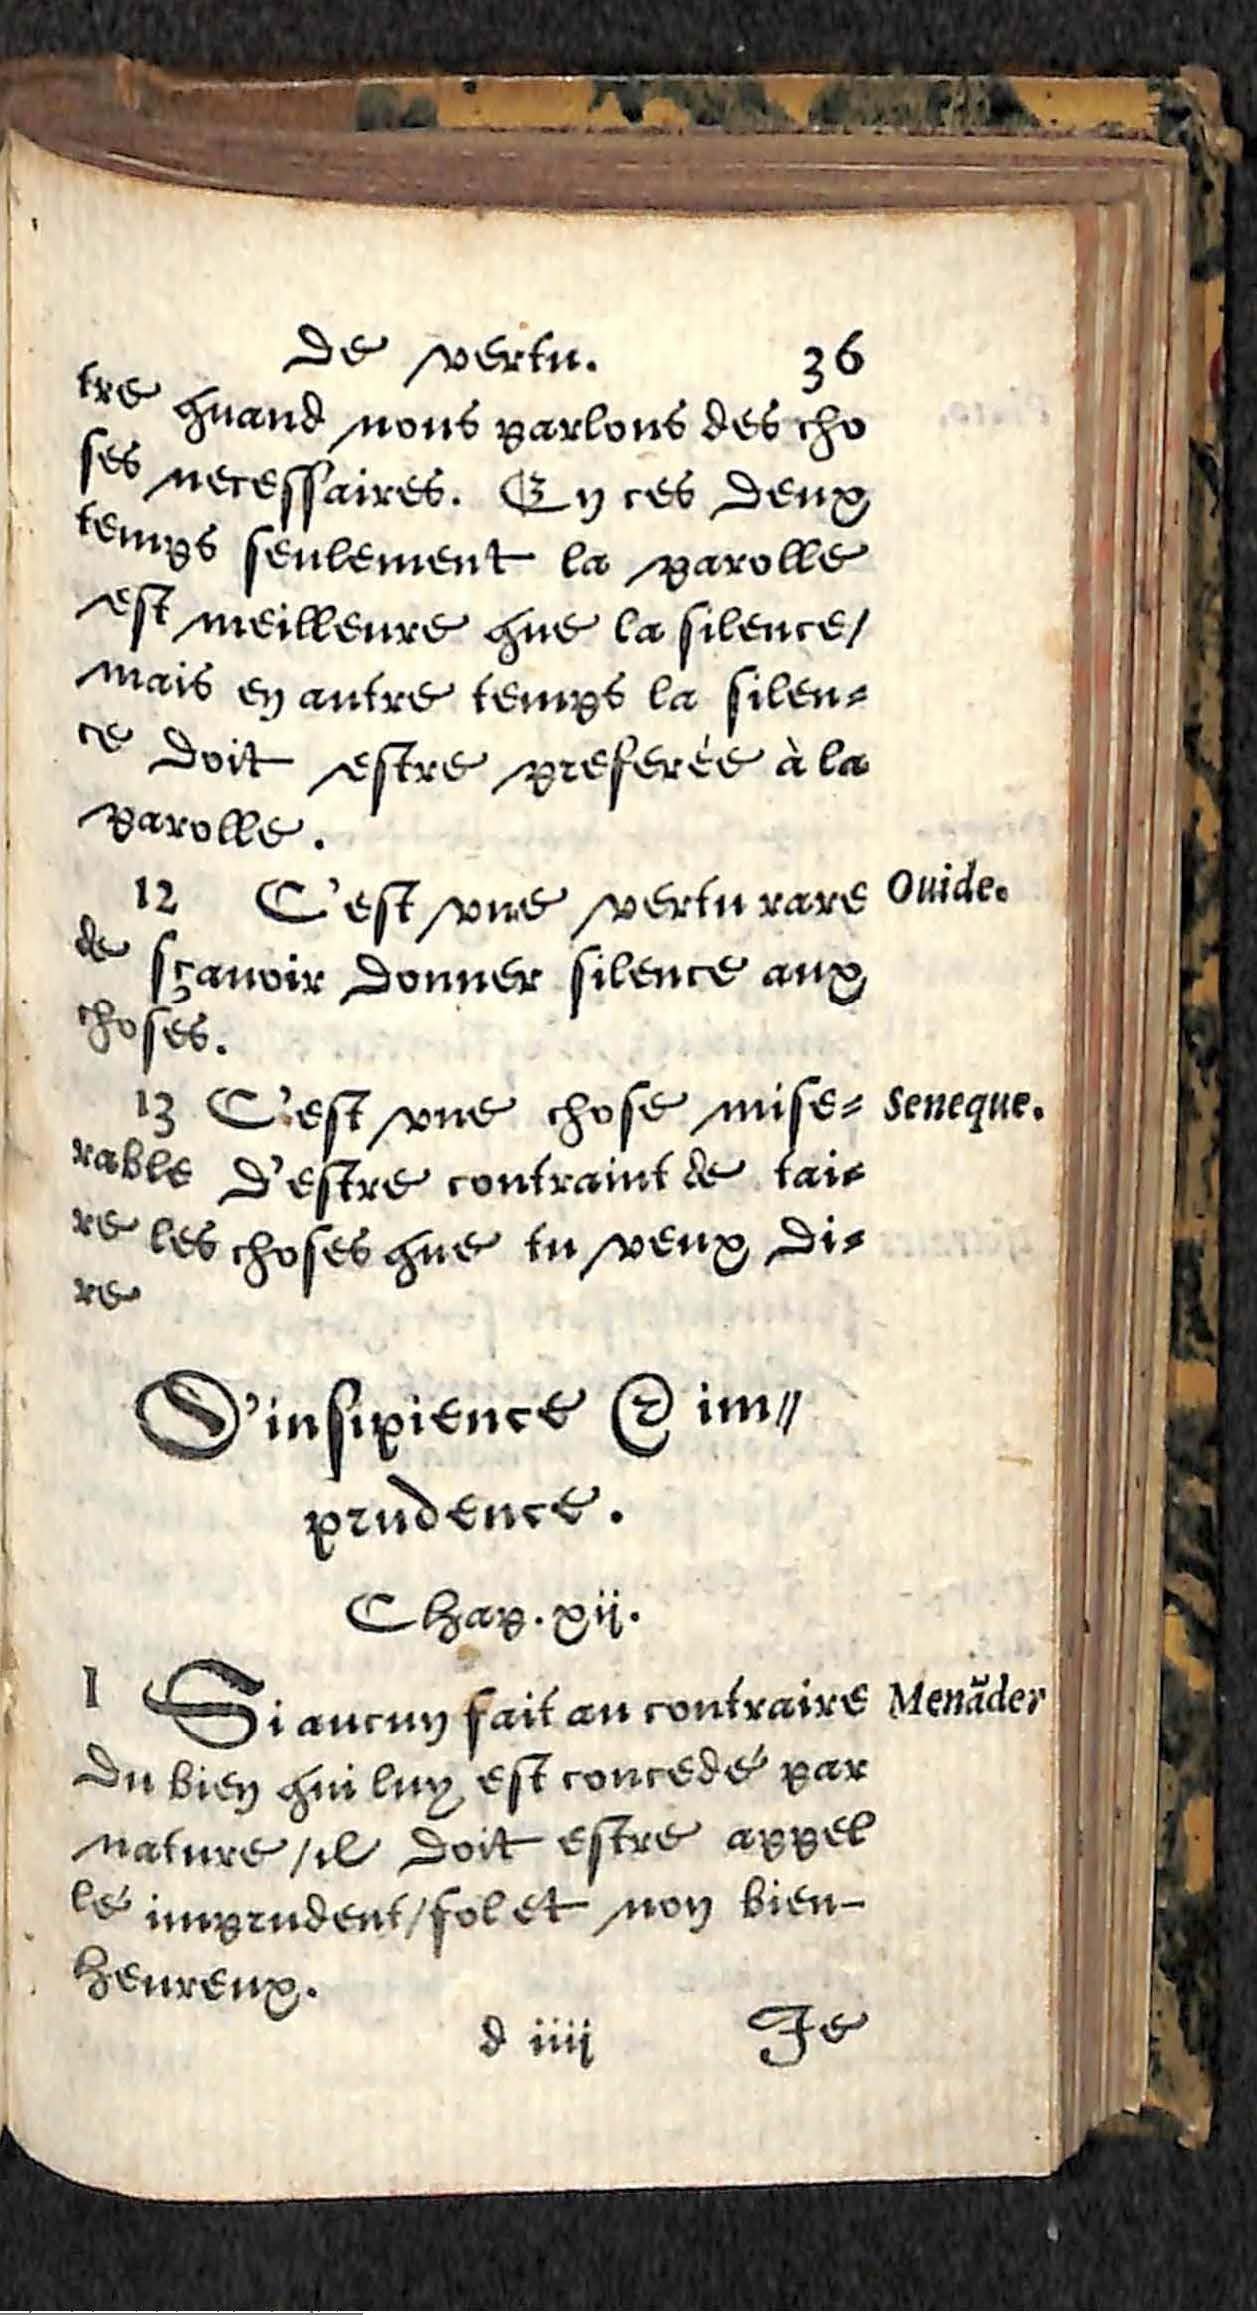 de vertu. 36
tre quand nous parlons des cho
ses necessaires. En ces deux
temps seulement la parolle
est meilleure que la silence/
mais en autre temps la silen=
ce doit estre preferée à la
parolle.
12 C'est vne vertu rare Ouide.
de sçauoir donner silence aux
choses.
13 C'est vne chose mise= Seneque.
rable d'estre contraint de tai=
re les choses que tu veux di=
re
D'insipience & im=
prudence.
Chap. xij.
1 Si aucun fait au contraire Menãder
du bien qui luy est concedé par
nature/il doit estre appel
lé imprudent/fol et non bien-
heureux.
d iiij Je